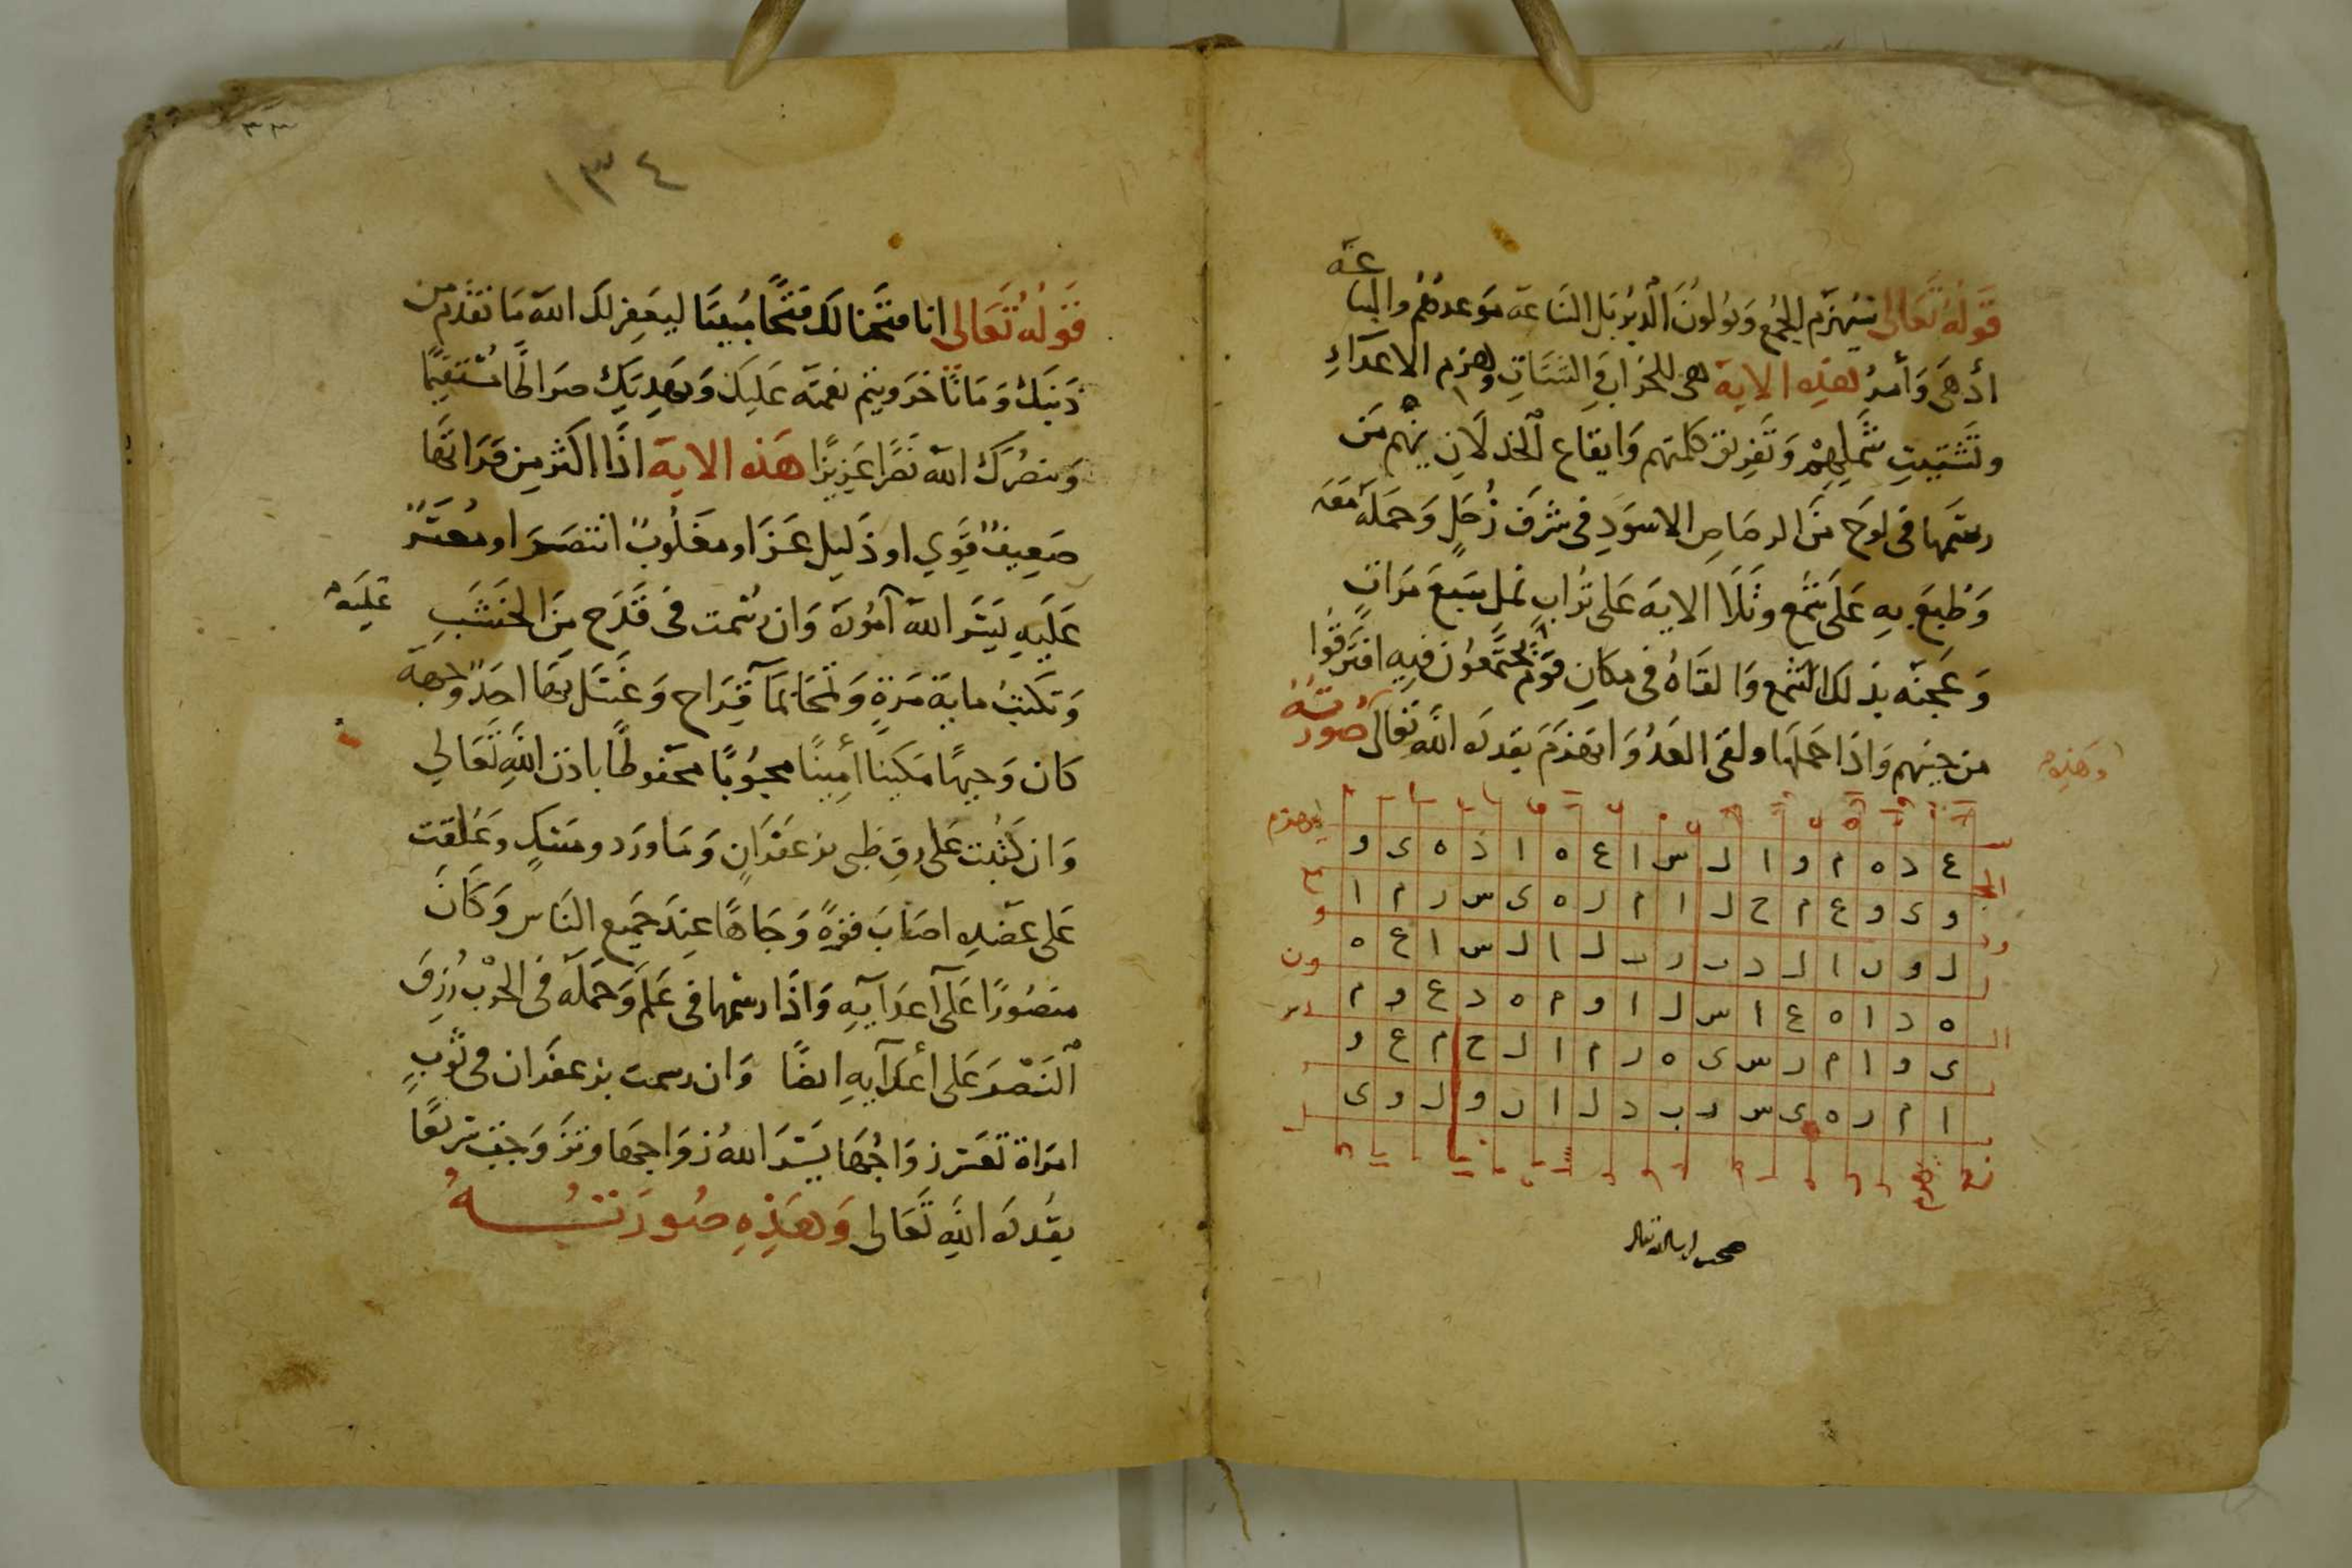 قَوله تَعَالى سَيُهزَم الجمع وَيُولونَ الدُّبُر بَل السَّاعَة مَوعدهُم والسا
عَة
ادهَى وَأمرُّ لهذِه الاية هى للخراب وَالشتَات وهزم الاعدَآءِ
وتَشتِيتِ شَملِهِم وَتَفرِيق كلمتهم وَايقاع الخذلَانِ بينهُم مَن
رسَمهَا فى لوح مِنَ الرصَاصِ الاسوَدِ فى شرَف زُحَلٍ وَحمَلهُ مَعَه
وَطُبعَ بِهِ عَلَى شَمع وتَلَا الايَة عَلى تُرابِ نمل سَبعَ مَرَاتٍ
وَعَجنَه بذلكَ الشمع وَالقَاهُ فى مكانِ قَوم يجتَمعُون فِيهِ افتَرَقُوا
من حِينِهم وَاذَا حَملَها ولقى العَدُو انهزَمَ بقدرَة اللَّه تَعَالى
وَهَذِه صُورَتُهُ
ع د ه م و ا ل س ا ع ه ا د ه ى و
و ى و ع م ح ل ا م ر ه ى س ر م ا
ل و ن ا ل د ب ر ب ل ا ل س ا ع ه
ه د ا ه ع ا س ل ا و م ه د ع و م
ى و ا م ر س ى ه ر م ا ل ح م ع و
ا م ر ه ى س ر ب د ل ا ن و ل و ى
١٣٤
٣٣
قَولُهُ تَعَالى انا فتَحنا لكَ فَتحًا مُبينًا ليَغفِر لكَ اللَّه مَا تقدَّم من
ذَنبكَ وَمَا تاخرَ ويتم نعمتَه عَليكَ وَيهدِيَكَ صرَاطًا مُستَقيمًا
وَينصُركَ اللَّه نَصرًا عَزيزًا هَذه الايَة اذَا اكثر مِن قِرَاتهَا
ضَعِيفٌ قَوِي او ذَليل عَزَ او مغلُوبٌ انتصَرَ او مُعسَرٌ
عَلَيهِ يَسَّرَ اللَّه امُورَه وَان رُسمت فى قَدَح مِنَ الخشَبِ
عَليَه
وَتكتبُ ماية مَرةٍ وَتمحَا بمَآ قَرَاح وَغسَل بهَا احَدٌ وَجهَه
كَان وَجيهًا مَكينا أمِينًا محبُوبًا محفوظًا باذن اللَّهِ تَعَالي
وَان كُتبت عَلى رق ظبى بزعفَرَانٍ وَمَاورَد ومسكٍ وعُلقت
عَلى عَضدِه اصَابَ قوةً وَجَاهًا عِندَ جَميع النَاس وَكَانَ
منصُورًا عَلَى اعدَآيهِ وَاذَا رسَمهَا فى عَلَم وَحَمَلَه فى الحرْب رُزِق
النَصْرَ عَلَى أعدَآيهِ ايضًا وَان رسمت بزعفرَان فى ثَوبِ
امرَاة تعَسر زوَاجُهَا يَسَّرَ اللَّهُ زوَاجهَا وتزَوَجت سَريعًا
بقدرَة اللَّهِ تَعَالى وَهَذِهِ صُورَتُـــهُ